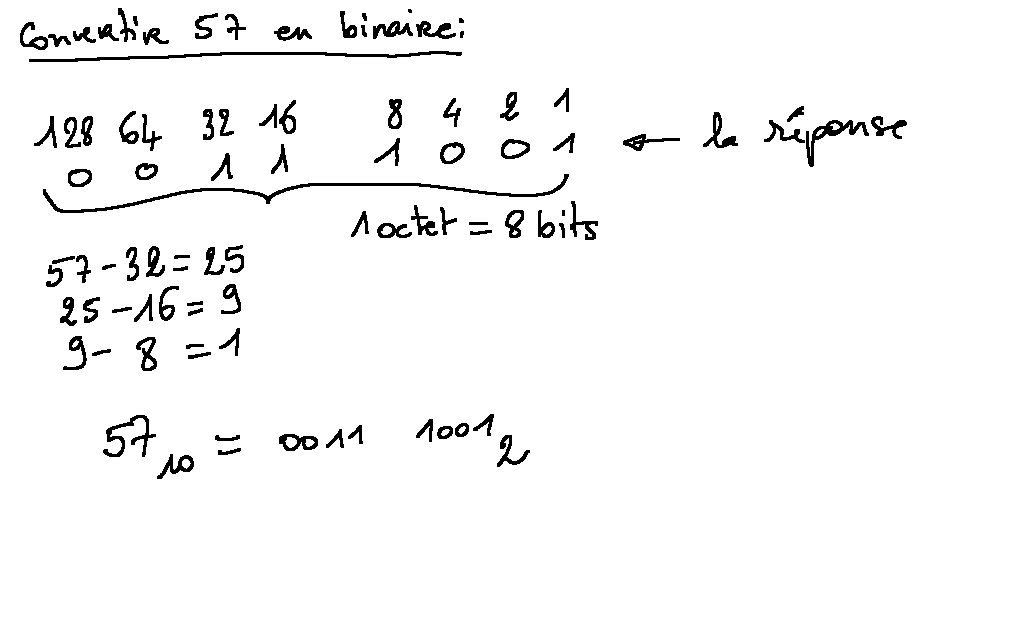 Convertir 57 en binaire:
128 64 32 16 8 4 2 1
0 0 1 1 1 0 0 1 ← la réponse
1 octet = 8 bits
57 - 32 = 25
25 - 16 = 9
9 - 8 = 1
57₁₀ = 0011 1001₂